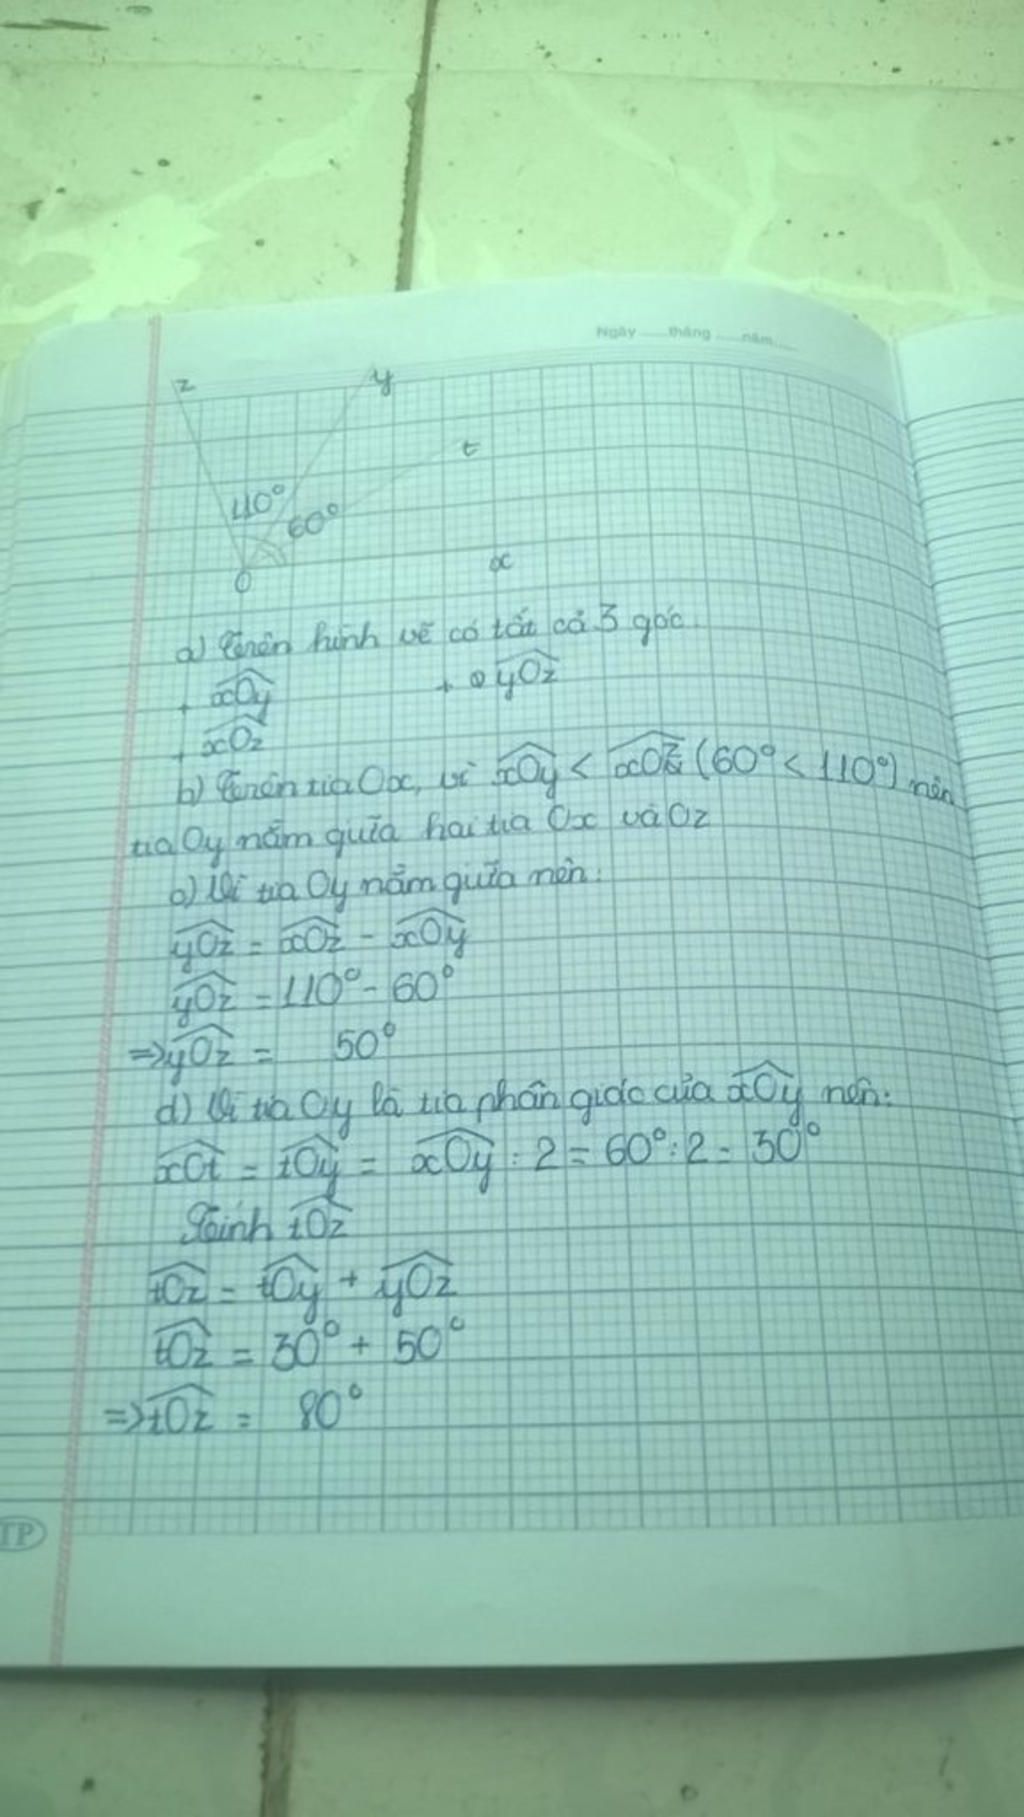 Ngày ......tháng ......năm......
z y
t
110°
60°
x
O
a) Trên hình vẽ có tất cả 3 góc.
+ xOy + yOz
+ xOz
b) Trên tia Ox, vì xOy < xOz (60° < 110°) nên
tia Oy nằm giữa hai tia Ox và Oz
c) Vì tia Oy nằm giữa nên:
yOz = xOz - xOy
yOz = 110° - 60°
=> yOz = 50°
d) Vì tia Oy là tia phân giác của xOy nên:
xOt = tOy = xOy : 2 = 60° : 2 = 30°
Tính tOz
tOz = tOy + yOz
tOz = 30° + 50°
=> tOz = 80°
TP